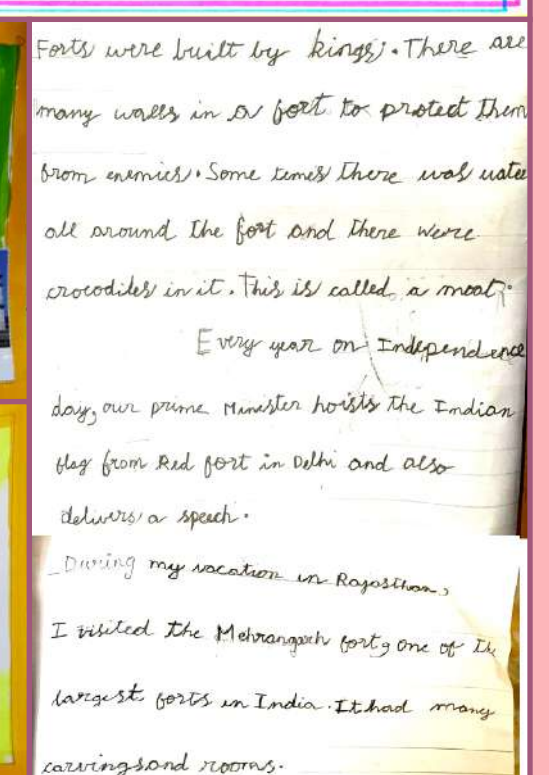 Forts were built by kings. There are
many walls in a fort to protect them
from enemies. Some times there was water
all around the fort and there were
crocodiles in it. This is called a moat.
Every year on Independence
day, our prime Minester hoists the Indian
flag from Red fort in Delhi and also
delivers a speech.
During my vacation in Rajasthan,
I visited the Mehrangarh fort, one of the
largest forts in India. It had many
carvings and rooms.